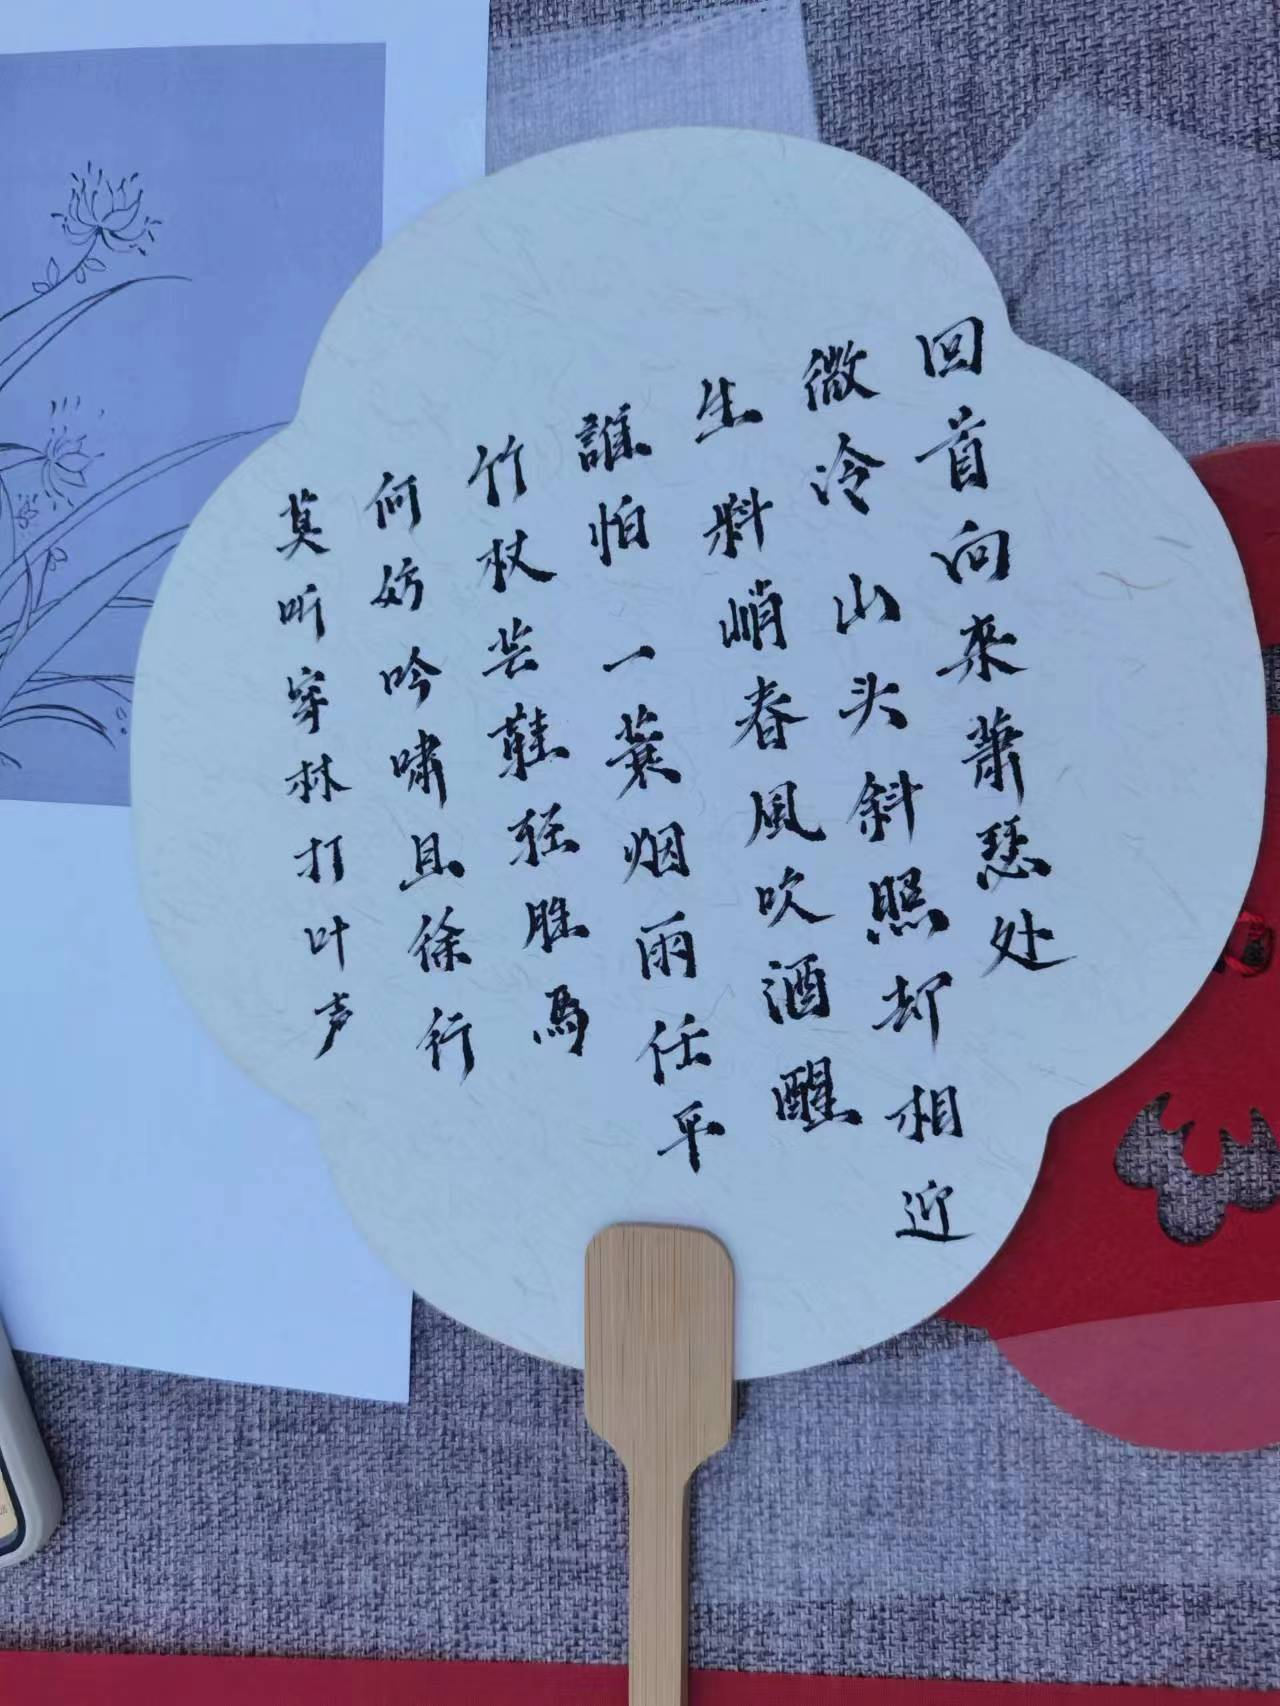 莫听穿林打叶声
何妨吟嘯且徐行
竹杖芒鞋轻胜馬
誰怕一蓑烟雨任平
生料峭春風吹酒醒
微冷山头斜照却相迎
回首向来蕭瑟处